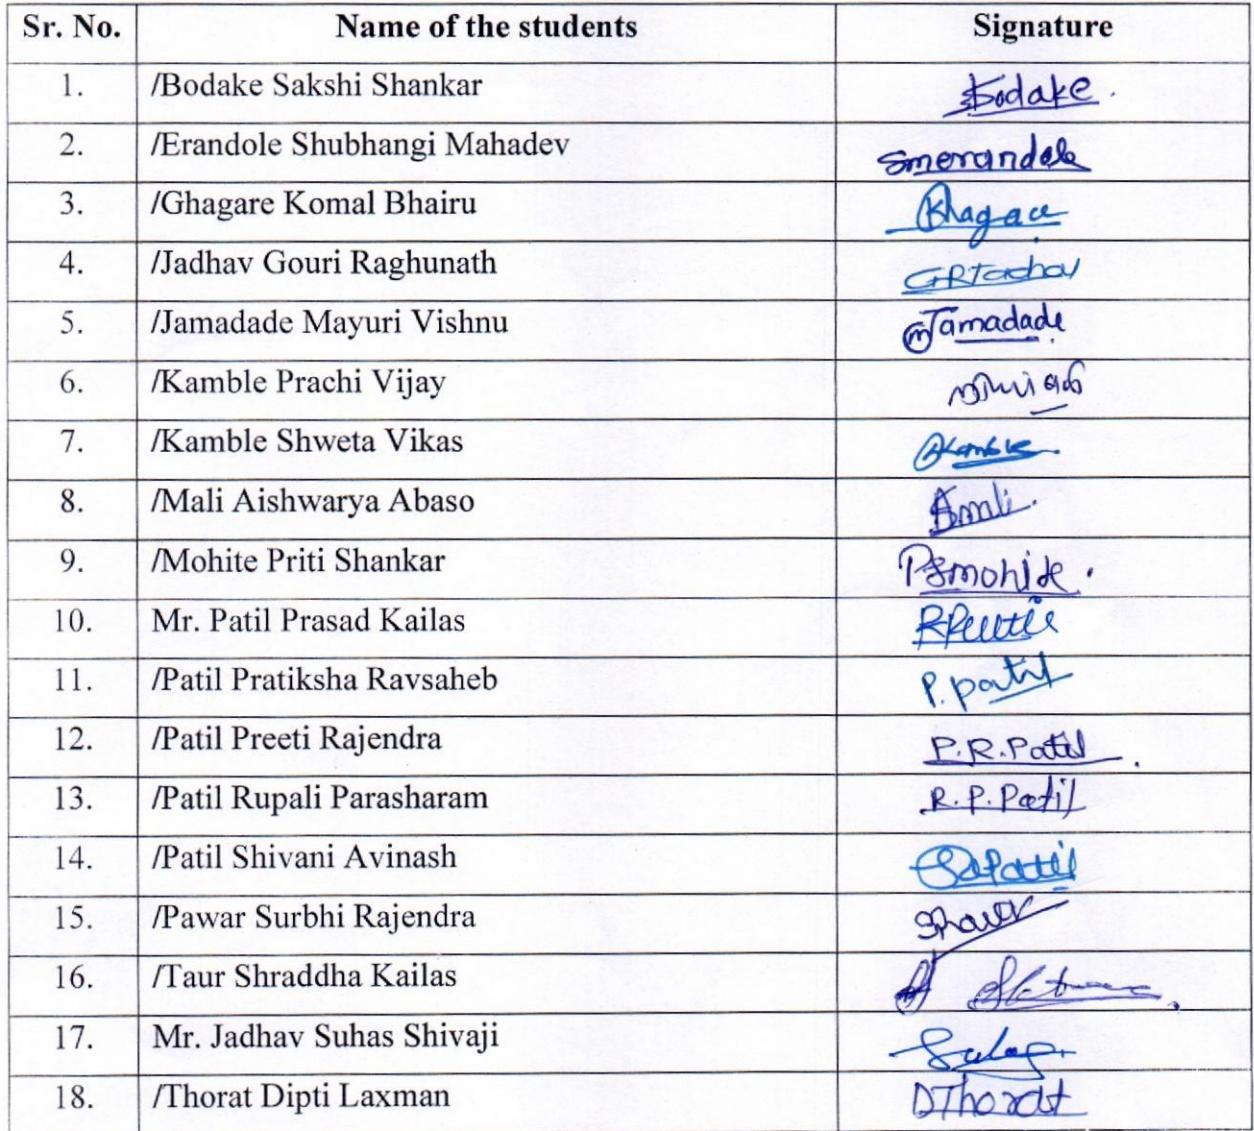 Sr. No. Name of the students Signature
1. /Bodake Sakshi Shankar Bodake.
2. /Erandole Shubhangi Mahadev Smerandole
3. /Ghagare Komal Bhairu
4. /Jadhav Gouri Raghunath GRJadhav
5. /Jamadade Mayuri Vishnu Jamadade
6. /Kamble Prachi Vijay
7. /Kamble Shweta Vikas Kamble
8. /Mali Aishwarya Abaso
9. /Mohite Priti Shankar PSmohite.
10. Mr. Patil Prasad Kailas
11. /Patil Pratiksha Ravsaheb P. patil
12. /Patil Preeti Rajendra P.R.Patil
13. /Patil Rupali Parasharam R.P.Patil
14. /Patil Shivani Avinash SAPatil
15. /Pawar Surbhi Rajendra
16. /Taur Shraddha Kailas
17. Mr. Jadhav Suhas Shivaji
18. /Thorat Dipti Laxman DThorat